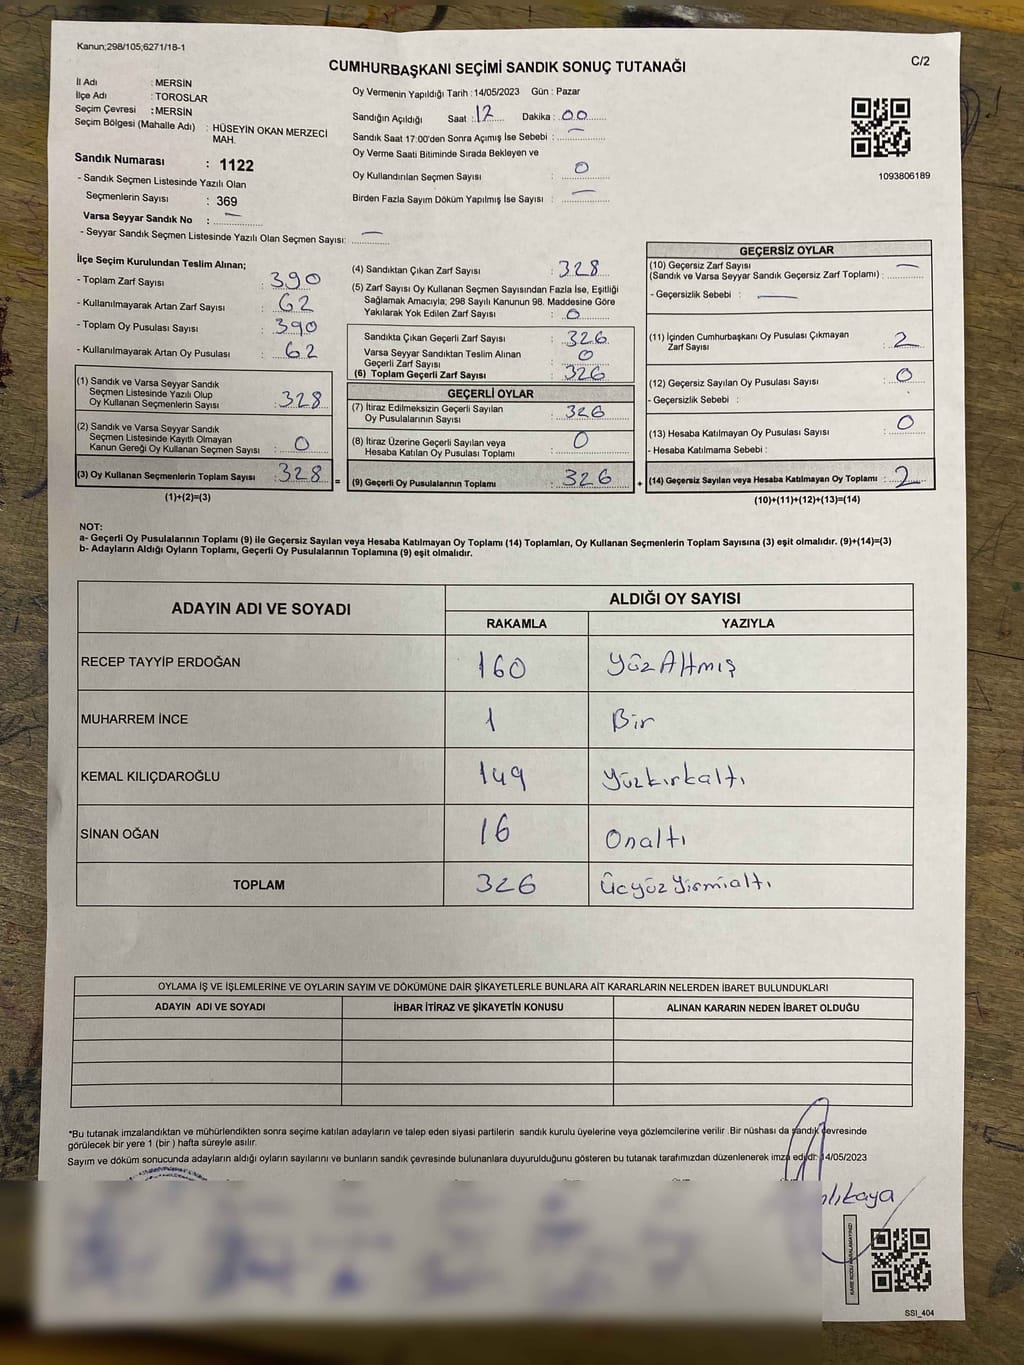 Kanun;298/105,6271/18-1
CUMHURBAŞKANI SEÇİMİ SANDIK SONUÇ TUTANAĞI
C/2
İl Adı : MERSİN
İlçe Adı : TOROSLAR
Seçim Çevresi : MERSİN
Seçim Bölgesi (Mahalle Adı) : HÜSEYİN OKAN MERZECİ
MAH.
Sandık Numarası : 1122
- Sandık Seçmen Listesinde Yazılı Olan
Seçmenlerin Sayısı : 369
Varsa Seyyar Sandık No : —
- Seyyar Sandık Seçmen Listesinde Yazılı Olan Seçmen Sayısı: —
Oy Vermenin Yapıldığı Tarih : 14/05/2023 Gün : Pazar
Sandığın Açıldığı Saat : 12 Dakika : 00
Sandık Saat 17:00'den Sonra Açımış İse Sebebi : —
Oy Verme Saati Bitiminde Sırada Bekleyen ve
Oy Kullandırılan Seçmen Sayısı : 0
Birden Fazla Sayım Döküm Yapılmış İse Sayısı : —
1093806189
İlçe Seçim Kurulundan Teslim Alınan;
- Toplam Zarf Sayısı : 390
- Kullanılmayarak Artan Zarf Sayısı : 62
- Toplam Oy Pusulası Sayısı : 390
- Kullanılmayarak Artan Oy Pusulası : 62
(1) Sandık ve Varsa Seyyar Sandık
Seçmen Listesinde Yazılı Olup
Oy Kullanan Seçmenlerin Sayısı : 328
(2) Sandık ve Varsa Seyyar Sandık
Seçmen Listesinde Kayıtlı Olmayan
Kanun Gereği Oy Kullanan Seçmen Sayısı : 0
(3) Oy Kullanan Seçmenlerin Toplam Sayısı : 328
(1)+(2)=(3)
(4) Sandıktan Çıkan Zarf Sayısı : 328
(5) Zarf Sayısı Oy Kullanan Seçmen Sayısından Fazla İse, Eşitliği
Sağlamak Amacıyla; 298 Sayılı Kanunun 98. Maddesine Göre
Yakılarak Yok Edilen Zarf Sayısı : 0
Sandıkta Çıkan Geçerli Zarf Sayısı : 326
Varsa Seyyar Sandıktan Teslim Alınan
Geçerli Zarf Sayısı : 0
(6) Toplam Geçerli Zarf Sayısı : 326
GEÇERLİ OYLAR
(7) İtiraz Edilmeksizin Geçerli Sayılan
Oy Pusulalarının Sayısı : 326
(8) İtiraz Üzerine Geçerli Sayılan veya
Hesaba Katılan Oy Pusulası Toplamı : 0
= (9) Geçerli Oy Pusulalarının Toplamı : 326
GEÇERSİZ OYLAR
(10) Geçersiz Zarf Sayısı
(Sandık ve Varsa Seyyar Sandık Geçersiz Zarf Toplamı) : —
- Geçersizlik Sebebi : —
(11) İçinden Cumhurbaşkanı Oy Pusulası Çıkmayan
Zarf Sayısı : 2
(12) Geçersiz Sayılan Oy Pusulası Sayısı : 0
- Geçersizlik Sebebi :
(13) Hesaba Katılmayan Oy Pusulası Sayısı : 0
- Hesaba Katılmama Sebebi :
+ (14) Geçersiz Sayılan veya Hesaba Katılmayan Oy Toplamı : 2
(10)+(11)+(12)+(13)=(14)
NOT:
a- Geçerli Oy Pusulalarının Toplamı (9) ile Geçersiz Sayılan veya Hesaba Katılmayan Oy Toplamı (14) Toplamları, Oy Kullanan Seçmenlerin Toplam Sayısına (3) eşit olmalıdır. (9)+(14)=(3)
b- Adayların Aldığı Oyların Toplamı, Geçerli Oy Pusulalarının Toplamına (9) eşit olmalıdır.
ADAYIN ADI VE SOYADI
ALDIĞI OY SAYISI
RAKAMLA YAZIYLA
RECEP TAYYİP ERDOĞAN 160 YüzAltmış
MUHARREM İNCE 1 Bir
KEMAL KILIÇDAROĞLU 149 Yüzkırkaltı
SİNAN OĞAN 16 Onaltı
TOPLAM 326 Üçyüz Yirmialtı
OYLAMA İŞ VE İŞLEMLERİNE VE OYLARIN SAYIM VE DÖKÜMÜNE DAİR ŞİKAYETLERLE BUNLARA AİT KARARLARIN NELERDEN İBARET BULUNDUKLARI
ADAYIN ADI VE SOYADI İHBAR İTİRAZ VE ŞİKAYETİN KONUSU ALINAN KARARIN NEDEN İBARET OLDUĞU
*Bu tutanak imzalandıktan ve mühürlendikten sonra seçime katılan adayların ve talep eden siyasi partilerin sandık kurulu üyelerine veya gözlemcilerine verilir .Bir nüshası da sandık çevresinde
görülecek bir yere 1 (bir ) hafta süreyle asılır.
Sayım ve döküm sonucunda adayların aldığı oyların sayılarını ve bunların sandık çevresinde bulunanlara duyurulduğunu gösteren bu tutanak tarafımızdan düzenlenerek imza edildi. 14/05/2023
SSI_404